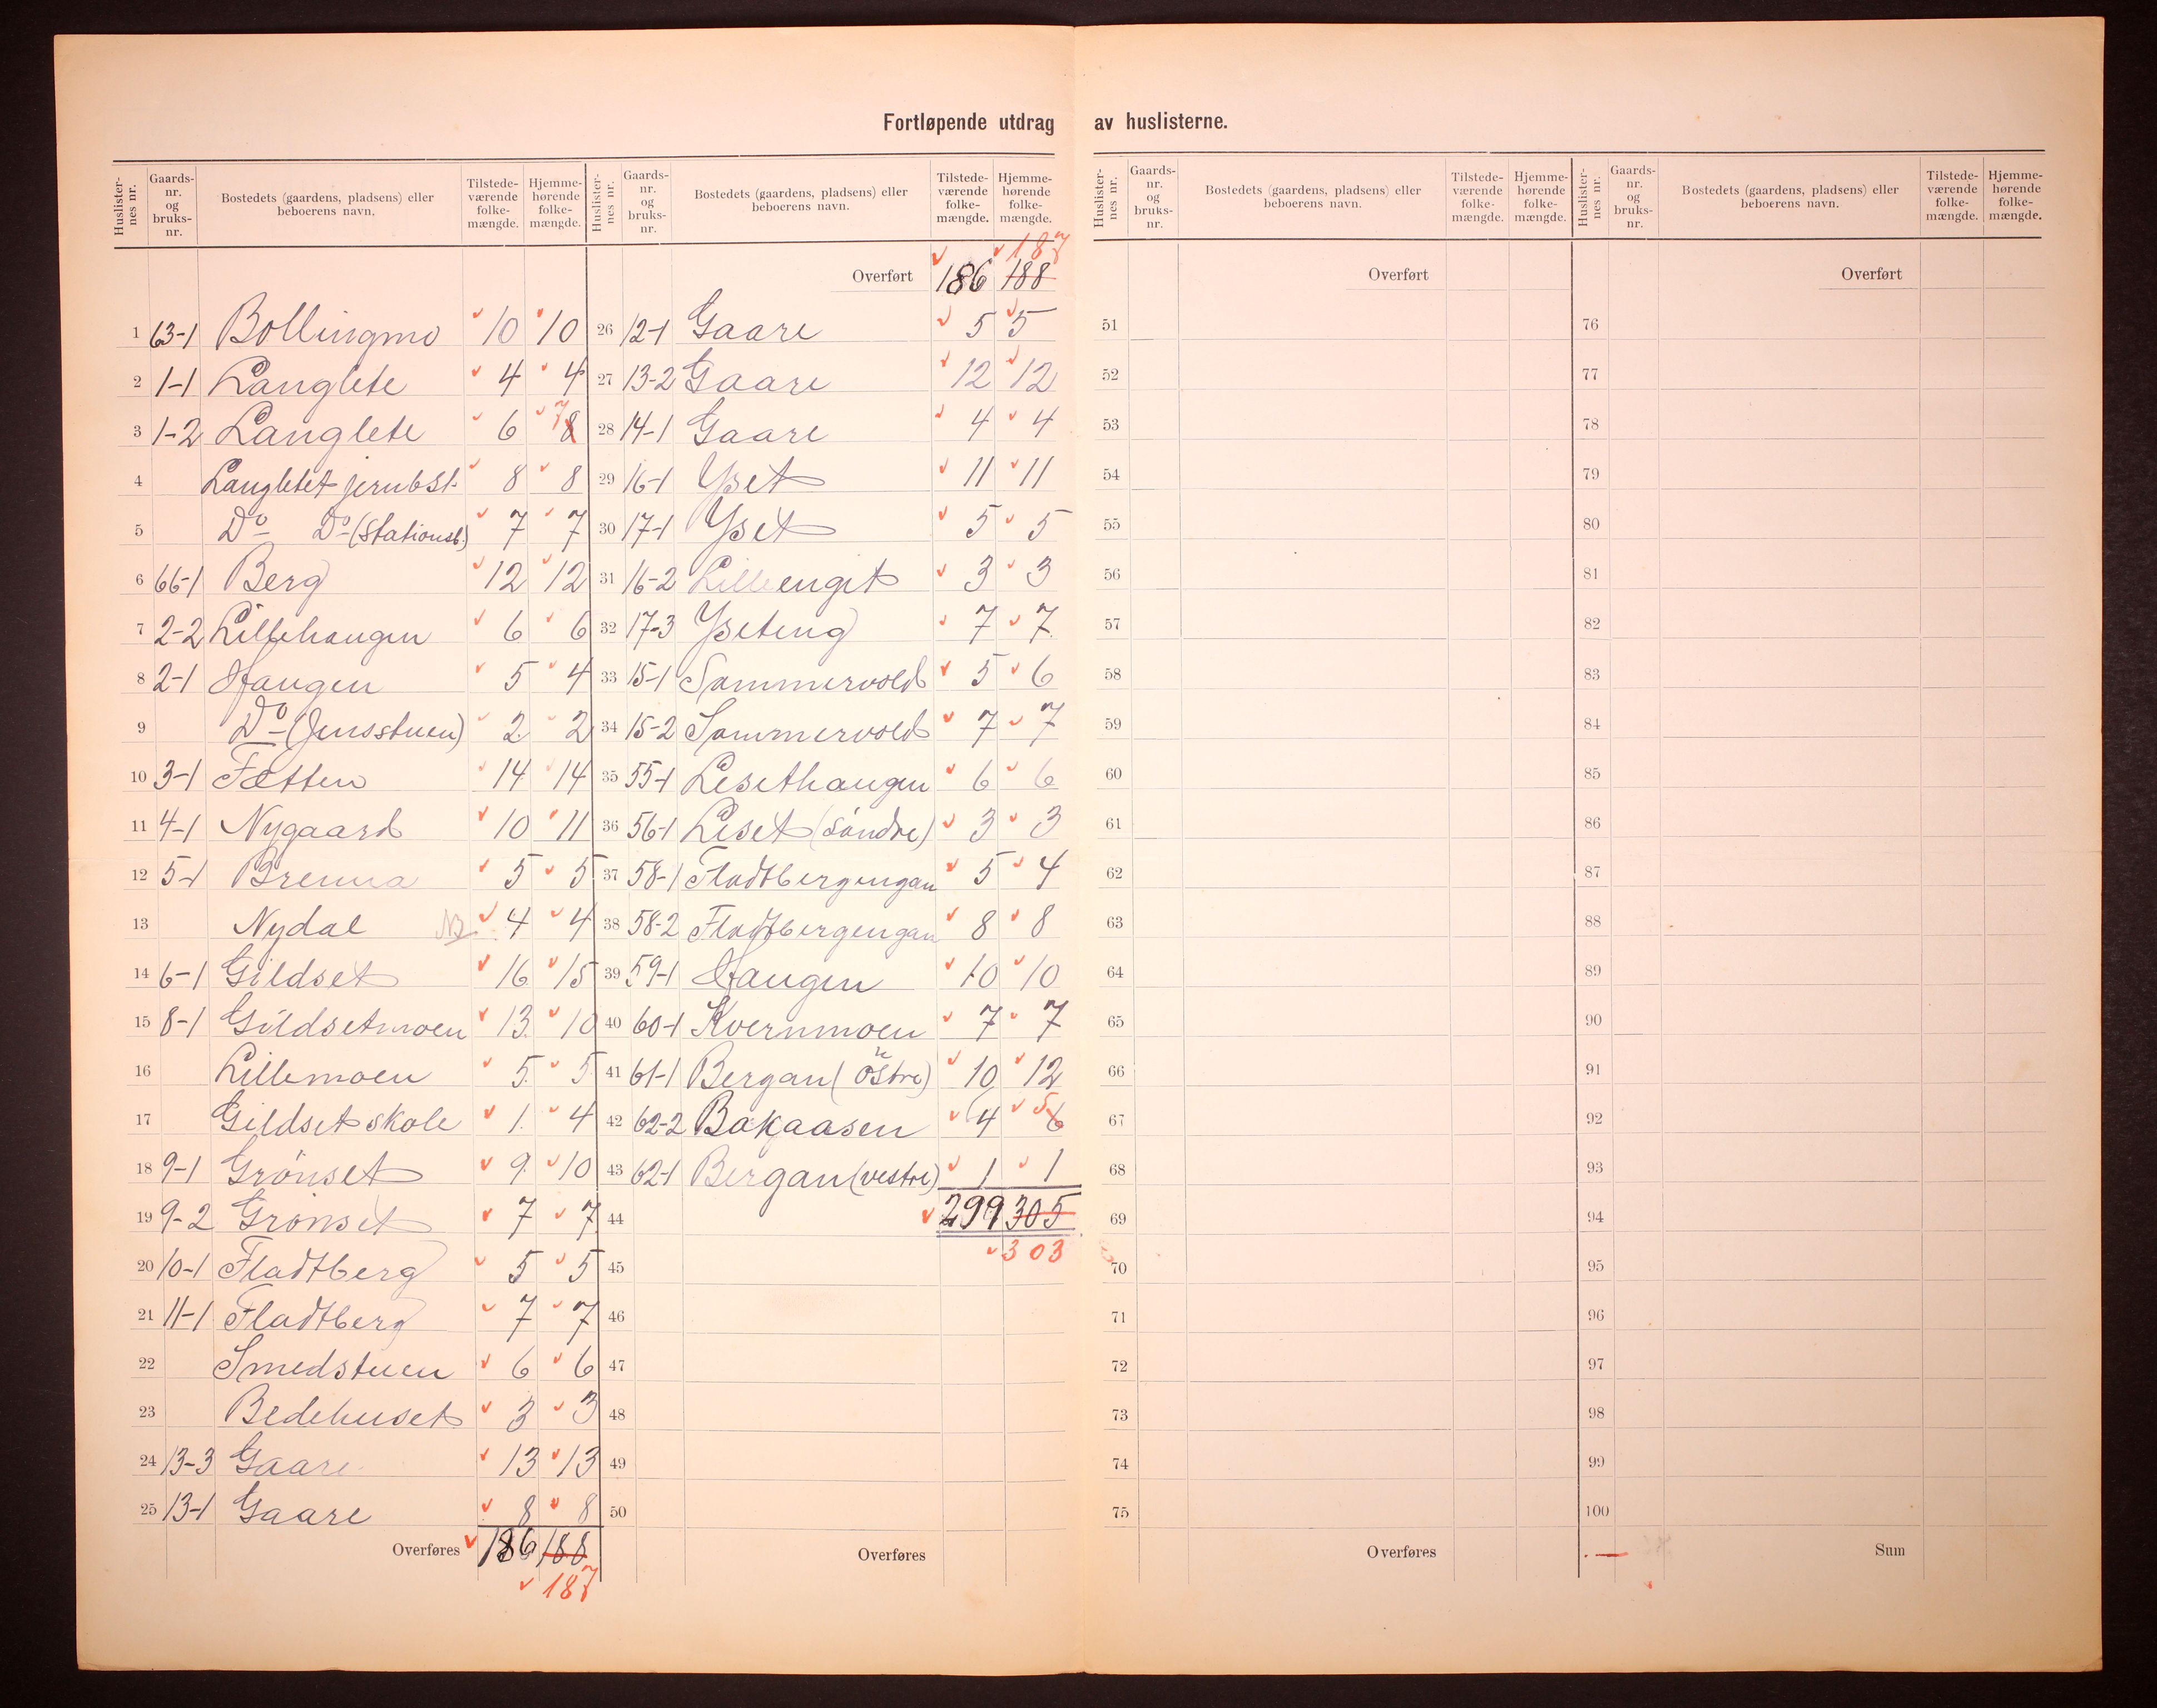 Fortløpende utdrag av huslisterne.
Huslister-nes nr. Gaards-nr. og bruks-nr. Bostedets (gaardens, pladsens) eller beboerens navn. Tilstede-værende folke-mængde. Hjemme-hørende folke-mængde.
1 63-1 Bollingmo 10 10
2 1-1 Langlete 4 4
3 1-2 Langlete 6 8 7
4 Langletet jernbst. 8 8
5 Do Do (Stationsb.) 7 7
6 66-1 Berg 12 12
7 2-2 Lillehaugen 6 6
8 2-1 Haugen 5 4
9 Do (Jensstuen) 2 2
10 3-1 Tætten 14 14
11 4-1 Nygaard 10 11
12 5-1 Brenna 5 5
13 Nydal NB 4 4
14 6-1 Gildset 16 15
15 8-1 Gildsetmoen 13 10
16 Lillemoen 5 5
17 Gildset skole 1 4
18 9-1 Grönset 9 10
19 9-2 Grönset 7 7
20 10-1 Fladtberg 5 5
21 11-1 Fladtberg 7 7
22 Smedstuen 6 6
23 Bedehuset 3 3
24 13-3 Gaare 13 13
25 13-1 Gaare 8 8
Overføres 186 188
187
Huslister-nes nr. Gaards-nr. og bruks-nr. Bostedets (gaardens, pladsens) eller beboerens navn. Tilstede-værende folke-mængde. Hjemme-hørende folke-mængde.
187
Overført 186 188
26 12-1 Gaare 5 5
27 13-2 Gaare 12 12
28 14-1 Gaare 4 4
29 16-1 Yset 11 11
30 17-1 Yset 5 5
31 16-2 Lillenget 3 3
32 17-3 Yseteng 7 7
33 15-1 Sommervold 5 6
34 15-2 Sommervold 7 7
35 55-1 Lesethaugen 6 6
36 56-1 Leset (söndre) 3 3
37 58-1 Fladtbergengan 5 4
38 58-2 Fladtbergengan 8 8
39 59-1 Haugen 10 10
40 60-1 Kvernmoen 7 7
41 61-1 Bergan (östre) 10 12
42 62-2 Bakaasen 4 6 5
43 62-1 Bergan (vestre) 1 1
44 299 305
45 303
46
47
48
49
50
Overføres
Huslister-nes nr. Gaards-nr. og bruks-nr. Bostedets (gaardens, pladsens) eller beboerens navn. Tilstede-værende folke-mængde. Hjemme-hørende folke-mængde.
Overført
51
52
53
54
55
56
57
58
59
60
61
62
63
64
65
66
67
68
69
70
71
72
73
74
75
Overføres
Huslister-nes nr. Gaards-nr. og bruks-nr. Bostedets (gaardens, pladsens) eller beboerens navn. Tilstede-værende folke-mængde. Hjemme-hørende folke-mængde.
Overført
76
77
78
79
80
81
82
83
84
85
86
87
88
89
90
91
92
93
94
95
96
97
98
99
100
Sum